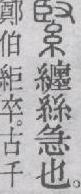 緊纏絲急也
鄭伯卒。古千